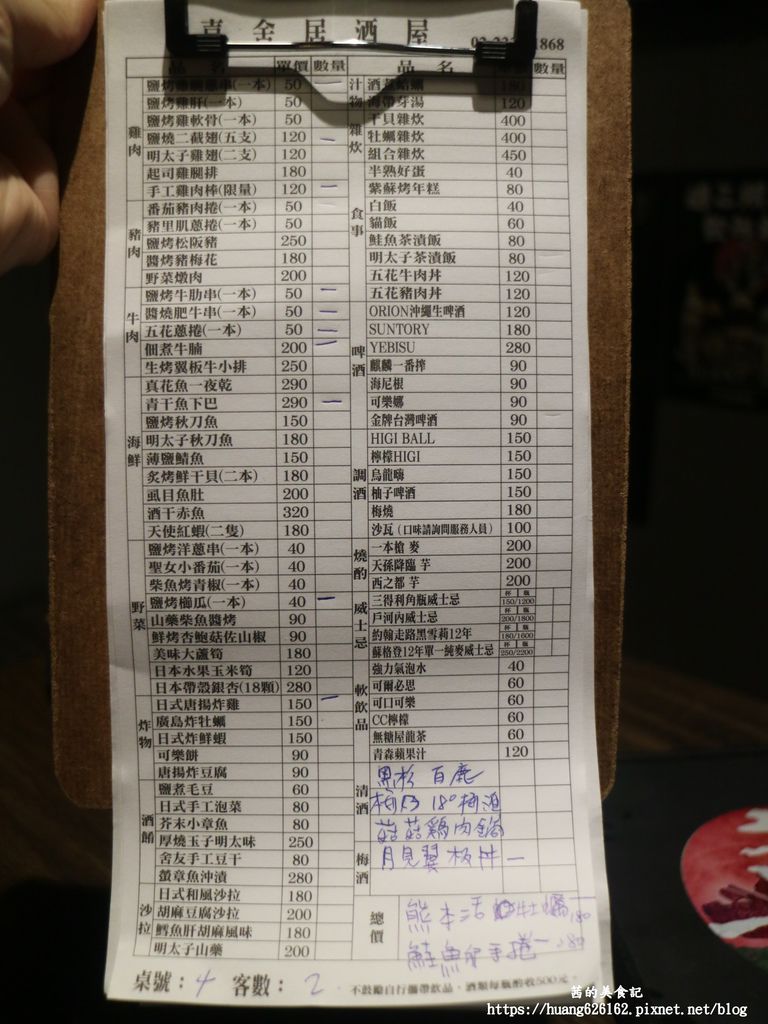 喜金居酒屋
1868
品 名 單價 數量
雞肉
鹽烤雞腿蔥串(一本) 50 一
鹽烤雞肝(一本) 50
鹽烤雞軟骨(一本) 50
鹽燒二截翅(五支) 120 一
明太子雞翅(二支) 120
起司雞腿排 180
手工雞肉棒(限量) 120 一
豬肉
番茄豬肉捲(一本) 50
豬里肌蔥捲(一本) 50
鹽烤松阪豬 250
醬烤豬梅花 180
野菜燉肉 200
牛肉
鹽烤牛肋串(一本) 50 一
醬燒肥牛串(一本) 50 二
五花蔥捲(一本) 50 二
佃煮牛腩 200 一
生烤翼板牛小排 250
海鮮
真花魚一夜乾 290
青干魚下巴 290 一
鹽烤秋刀魚 150
明太子秋刀魚 180
薄鹽鯖魚 150
炙烤鮮干貝(二本) 180
虱目魚肚 200
酒干赤魚 320
天使紅蝦(二隻) 180
野菜
鹽烤洋蔥串(一本) 40
聖女小番茄(一本) 40
柴魚烤青椒(一本) 40
鹽烤櫛瓜(一本) 40 一
山藥柴魚醬烤 90
鮮烤杏鮑菇佐山椒 90
美味大蘆筍 180
日本水果玉米筍 120
日本帶殼銀杏(18顆) 280
炸物
日式唐揚炸雞 150 一
廣島炸牡蠣 150
日式炸鮮蝦 150
可樂餅 90
唐揚炸豆腐 90
酒餚
鹽煮毛豆 60
日式手工泡菜 80
芥末小章魚 80
厚燒玉子明太味 250
舍友手工豆干 80
螢章魚沖漬 280
沙拉
日式和風沙拉 180
胡麻豆腐沙拉 200
鱈魚肝胡麻風味 180
明太子山藥 200
品 名 數量
汁物
酒蒸蛤蠣 180
海帶芽湯 120
雜炊
干貝雜炊 400
牡蠣雜炊 400
組合雜炊 450
食事
半熟好蛋 40
紫蘇烤年糕 80
白飯 40
貓飯 60
鮭魚茶漬飯 80
明太子茶漬飯 80
五花牛肉丼 120
五花豬肉丼 120
啤酒
ORION沖繩生啤酒 120
SUNTORY 180
YEBISU 280
麒麟一番搾 90
海尼根 90
可樂娜 90
金牌台灣啤酒 90
調酒
HIGI BALL 150
檸檬HIGI 150
烏龍嗨 150
柚子啤酒 150
梅燒 180
沙瓦（口味請詢問服務人員） 100
燒酌
一本槍 麥 200
天孫降臨 芋 200
西之都 芋 200
威士忌
三得利角瓶威士忌 杯 瓶 150/1200
戶河內威士忌 杯 瓶 200/1800
約翰走路黑雪莉12年 杯 瓶 180/1600
蘇格登12年單一純麥威士忌 杯 瓶 250/2200
軟飲品
強力氣泡水 40
可爾必思 60
可口可樂 60
CC檸檬 60
無糖屋龍茶 60
青森蘋果汁 120
清酒
黑松 白鹿
18°梅酒
菇菇雞肉鍋
梅酒
月見翼板丼 一
總價
熊本活 牡蠣 一 180
鮭魚 手捲 一
桌號：4 客數：2 不鼓勵自行攜帶飲品。酒類每瓶酌收500元。
茜的美食記
https://huang626162.pixnet.net/blog